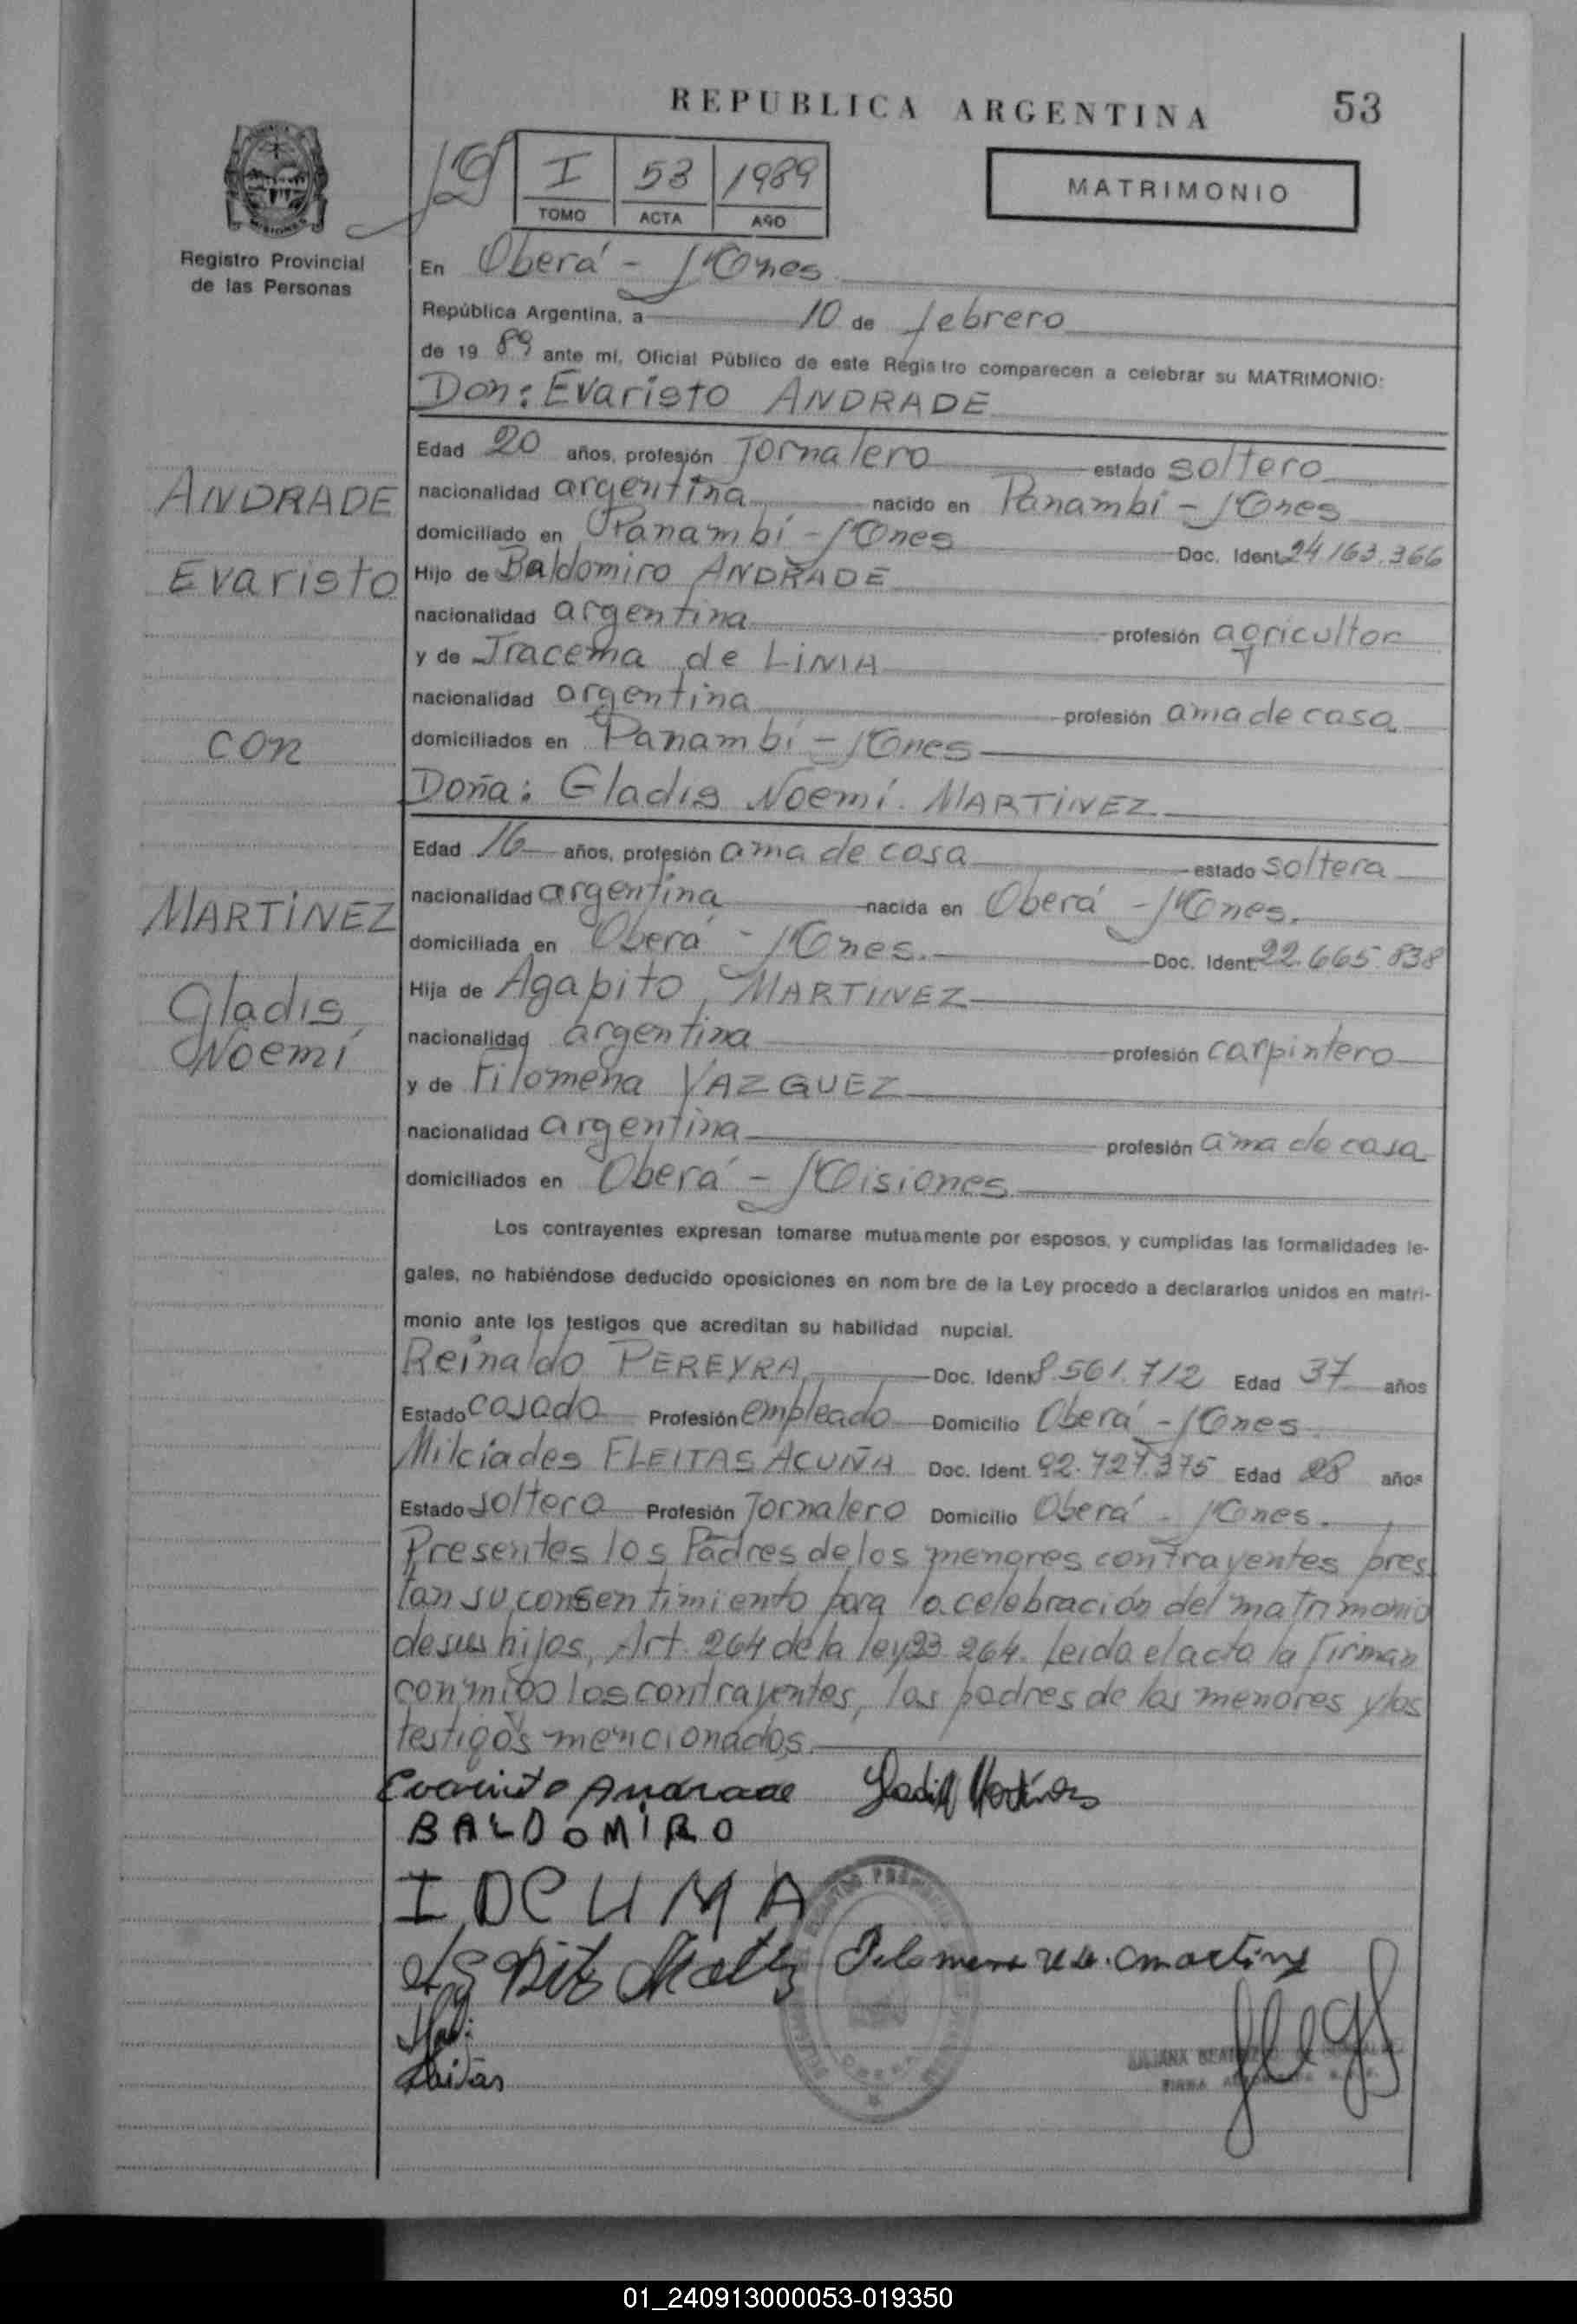 REPUBLICA ARGENTINA
53
19
I 53 1989
TOMO ACTA AÑO
MATRIMONIO
MISIONES
Registro Provincial
de las Personas
En Oberá - Mnes
República Argentina, a 10 de febrero
de 19 89 ante mi, Oficial Público de este Registro comparecen a celebrar su MATRIMONIO:
Don: Evaristo ANDRADE
Edad 20 años, profesión Jornalero estado soltero
nacionalidad argentina nacido en Panambí - Mnes
domiciliado en Panambí - Mnes Doc. Ident. 24163.366
Hijo de Baldomiro ANDRADE
nacionalidad argentina profesión agricultor
y de Iracema de LINIA
nacionalidad argentina profesión ama de casa
domiciliados en Panambí - Mnes
Doña: Gladis Noemí MARTINEZ
Edad 16 años, profesión ama de casa estado soltera
nacionalidad argentina nacida en Oberá - Mnes.
domiciliada en Oberá - Mnes. Doc. Ident. 22.665.838
Hija de Agapito MARTINEZ
nacionalidad argentina profesión carpintero
y de Filomena VAZGUEZ
nacionalidad argentina profesión ama de casa
domiciliados en Oberá - Misiones
ANDRADE
Evaristo
con
MARTINEZ
Gladis
Noemí
Los contrayentes expresan tomarse mutuamente por esposos, y cumplidas las formalidades le-
gales, no habiéndose deducido oposiciones en nom bre de la Ley procedo a declararlos unidos en matri-
monio ante los testigos que acreditan su habilidad nupcial.
Reinaldo PEREYRA Doc. Ident 8.561.712 Edad 37 años
Estado casado Profesión empleado Domicilio Oberá - Mnes
Milciades FLEITAS ACUÑA Doc. Ident. 92.727.375 Edad 28 años
Estado soltero Profesión Jornalero Domicilio Oberá - Mnes.
Presentes los Padres de los menores contrayentes pres
tan su consentimiento para la celebración del matrimonio
de sus hijos, Art. 264 de la ley 23.264. Leida el acta la firman
conmigo los contrayentes, los padres de los menores y los
testigos mencionados.
Evaristo Andrade Gladis Martínez
BALDOMIRO
OBERA
01_240913000053-019350